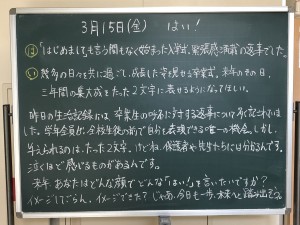 3月15日(金) はい!
は「はじめまして」も言う間もなく始まった入学式。緊張感満載の返事でした。
い 幾多の日々を共に過ごし、成長した姿を見せる卒業式。来年のその日、
三年間の集大成をたった2文字に表せるようになってほしい。
昨日の生活記録には、卒業生の呼名に対する返事について多く記されていま
した。学年全員が、全校生徒の前で自分を表現できる唯一の機会。しかし、
与えられるのは、たった2文字。けどね、保護者や先生たちには分かるんです。
泣くほど感じるものがあるんです。
来年、あなたはどんな顔でどんな「はい!」を言いたいですか?
イメージしてごらん。イメージできた?じゃあ、今日も一歩、未来へと踏み出そう。